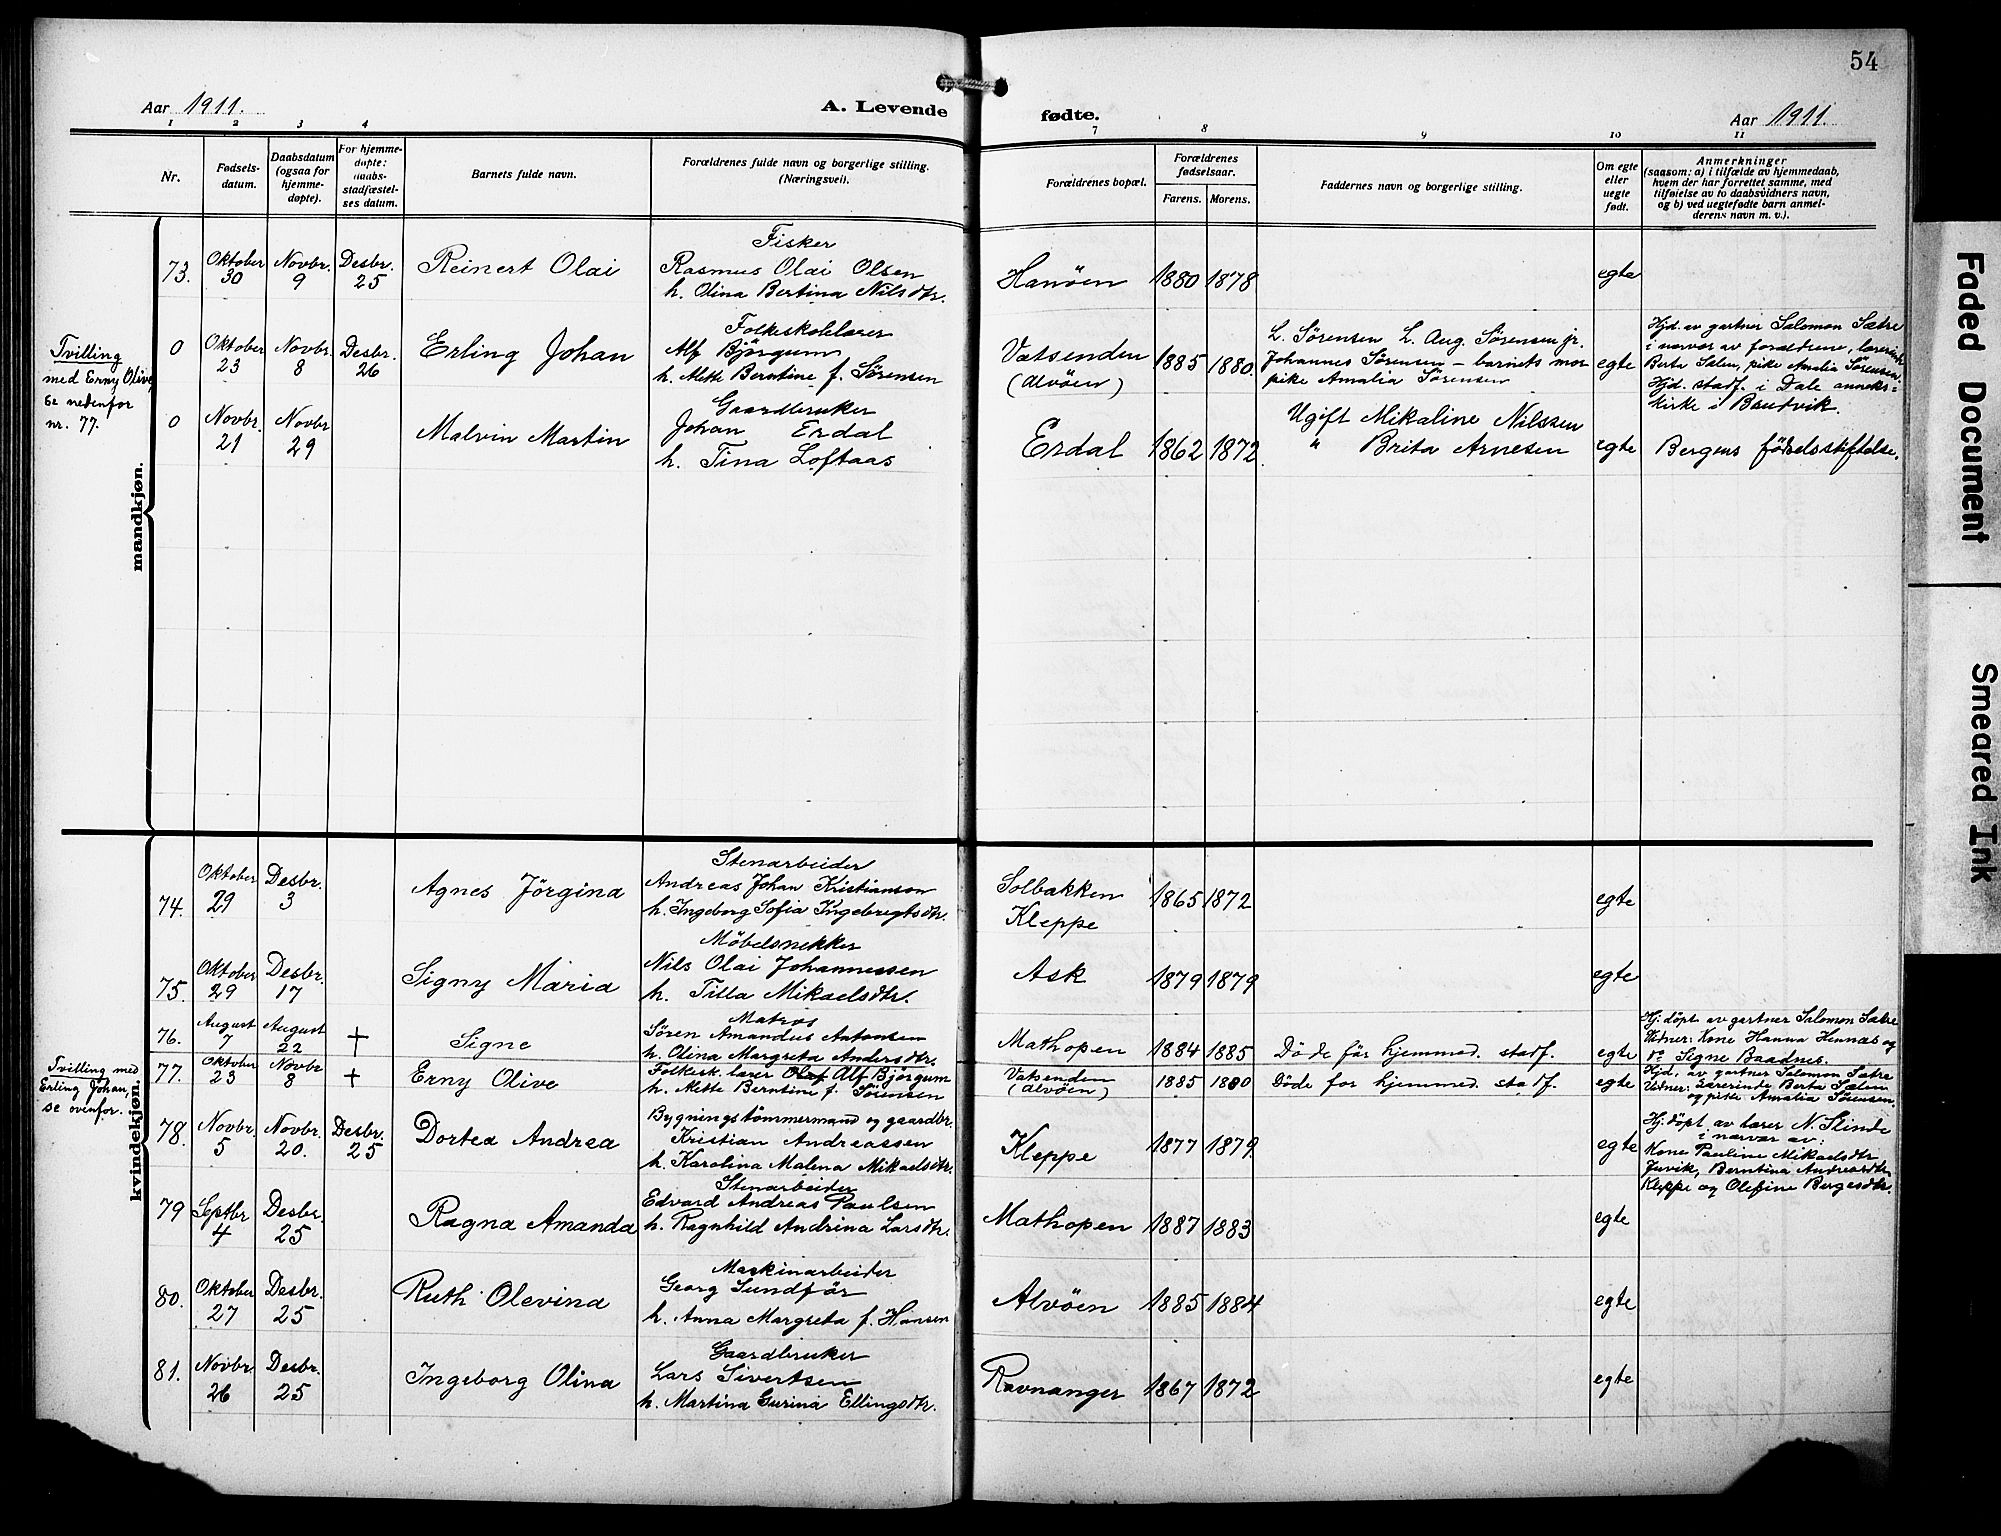 54
Aar 1911.
A. Levende
fødte.
Aar 1911.
1 2 3 4 7 8 9 10 11
Nr.
Fødsels-
datum.
Daabsdatum
(ogsaa for
hjemme-
døpte).
For hjemme-
døpte:
daabs-
stadfæstel-
ses datum.
Barnets fulde navn.
Forældrenes fulde navn og borgerlige stilling.
(Næringsvei).
Forældrenes bopæl.
Forældrenes
fødselsaar.
Farens. Morens.
Faddernes navn og borgerlige stilling.
Om egte
eller
uegte
født.
Anmerkninger
(saasom: a) i tilfælde av hjemmedaab,
hvem der har forrettet samme, med
tilføielse av to daabsvidners navn,
og b) ved uegtefødte barn anmel-
derens navn m. v.).
mandkjøn.
73. Oktober 30 Novbr. 9 Desbr. 25 Reinert Olai
Fisker
Rasmus Olai Olsen
h. Olina Bertina Nilsdtr.
Hanöen 1880 1878 egte
Tvilling
med Erny Olive,
se nedenfor
nr. 77.
0 Oktober 23 Novbr. 8 Desbr. 26 Erling Johan
Folkeskolelærer
Alf Björgum
h. Mette Berntine f. Sörensen
Vatsenden
(Alvöen)
1885 1880
L. Sörensen L. Aug. Sörensen jr.
Johannes Sörensen – barnets mor
pike Amalia Sörensen
egte
Hjd. av gartner Salomon Sætre
i nærvær av forældrene, lærerinde
Berta Salem, pike Amalia Sörensen.
Hjd. stadf. i Dale anneks-
kirke i Bruvik.
0 Novbr. 21 Novbr 29 Malvin Martin
Gaardbruker
Johan Erdal
h. Tina Loftaas
Erdal 1862 1872.
Ugift Mikaline Nilssen
" Brita Arnesen
egte Bergens födselsstiftelse.
kvindekjøn.
74. Oktober 29 Desbr. 3 Agnes Jörgina
Stenarbeider
Andreas Johan Kristianson
h. Ingeborg Sofia Ingebregtsdtr.
Solbakken
Kleppe
1865 1872 egte
75. Oktober 29 Desbr. 17 Signy Maria
Möbelsnekker
Nils Olai Johannessen
h. Tilla Mikaelsdtr.
Ask 1879 1879 egte
76. August 7 August 22 + Signe
Matros
Sören Amandus Antonsen
h. Olina Margreta Andersdtr.
Mathopen 1884 1885 Döde för hjemmed. stadf. egte
Hj: döpt av gartner Salomon Sætre
Vidner: Kone Hanna Hennas og
do Signe Baadnes.
Tvilling med
Erling Johan,
se ovenfor.
77. Oktober 23 Novbr 8 + Erny Olive
Folkesk. lærer Olaf Alf Björgum
h. Mette Berntine f. Sörensen
Vatsenden
(Alvöen)
1885 1880 Döde for hjemmed. stadf. egte
Hjd. av gartner Salomon Sætre
Vidner: Lærerinde Berta Sælen
og pike Amalia Sörensen.
78. Novbr. 5 Novbr. 20. Desbr. 25 Dortea Andrea
Bygningstömmermand og gaardbr.
Kristian Andreassen
h. Karolina Malena Mikaelsdtr.
Kleppe 1877 1879 egte
Hj: döpt av lærer N. Slinde
i nærvær av:
Kone Pauline Mikaelsdtr
Juvik, Berntina Andreasdtr
Kleppe og Olefine Bergesdtr.
79 Septbr 4 Desbr. 25 Ragna Amanda
Stenarbeider
Edvard Andreas Paulsen
h. Ragnhild Andrina Larsdtr.
Mathopen 1887 1883 egte
80. Oktober 27 Desbr. 25 Ruth Olevina
Maskinarbeider
Georg Sundför
h. Anna Margreta f. Hansen
Alvöen 1885 1884 egte
81. Novbr. 26 Desbr. 25 Ingeborg Olina
Gaardbruker
Lars Sivertsen
h. Martina Gurina Ellingsdtr.
Ravnanger 1867 1872 egte
Faded Document
Smeared Ink